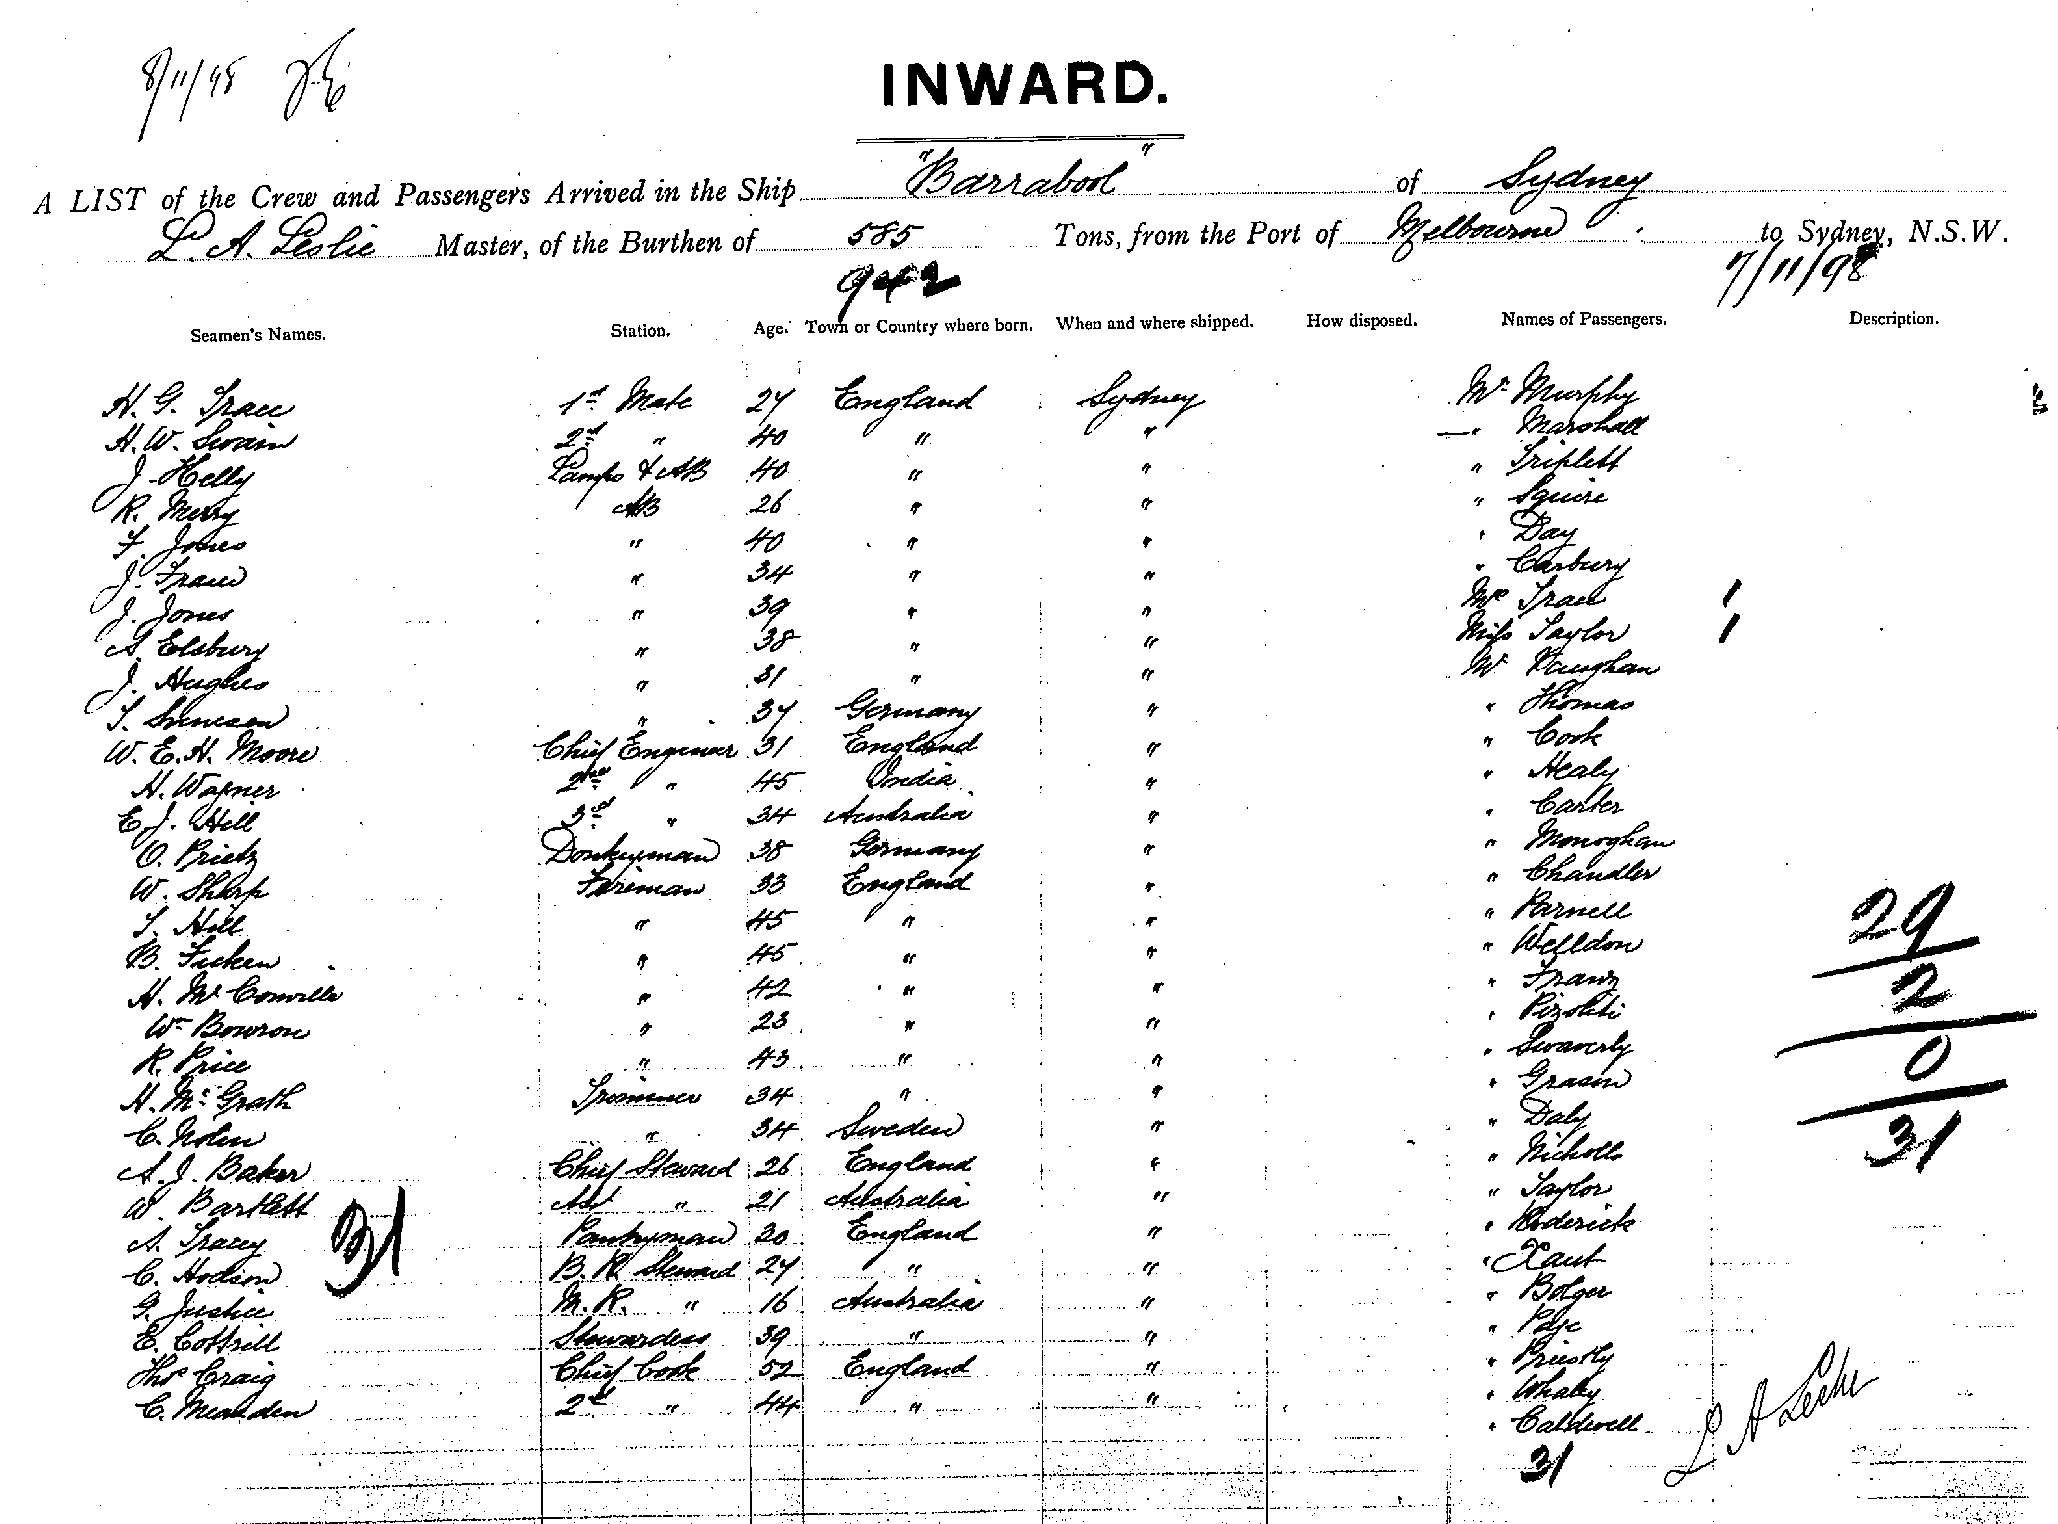 8/11/98
INWARD.
A LIST of the Crew and Passengers Arrived in the Ship "Barrabool" of Sydney
L. A. Leslie Master, of the Burthen of 585 Tons, from the Port of Melbourne to Sydney, N.S.W.
942 7/11/98
Seamen's Names. Station. Age. Town or Country where born. When and where shipped. How disposed. Names of Passengers. Description.
H. G. 1st Mate 27 England Sydney Mr Murphy
H. W. Swain 2nd " 40 " " " Marshall
J. Helly Lamps & AB 40 " " " Triplett
R. Merry AB 26 " " " Squire
F. Jones " 40 " " " Day
J. " 34 " " " Carbury
J. Jones " 39 " " 
A. Elsbury " 38 " " Miss Taylor
J. Hughes " 31 " " Mr Vaughan
" 37 Germany " " Thomas
W. E. H. Moore Chief Engineer 31 England " " Cook
H. Wagner 2nd " 45 India " " Healy
E. J. Hill 3rd " 34 Australia " " Carter
O. Prietz Donkeyman 38 Germany " " Monoghan
W. Sharp Fireman 33 England " " Chandler
T. Hill " 45 " " " Parnell
B. Ficken " 45 " " " Welldon
H. McConville " 42 " " " Franz
Wm Bowron " 23 " " "
R. Price " 43 " " " Swaverly
H. McGrath Trimmer 34 " " "
C. Nolin " 34 Sweden " " Daly
A. J. Baker Chief Steward 26 England " " Nicholls
W. Bartlett " 21 Australia " " Taylor
A. Tracey Pantryman 20 England " " Roderick
C. Hodson B. R. Steward 27 " " "
G. Justice M. R. " 16 Australia " " Bolger
E. Cottrill Stewardess 39 " " " Page
Thos Craig Chief Cook 52 England " " Priestly
C. Meadden 2nd " 44 " " " Whaley
" Caldwell
31
31
29
2
0
31
L A Leslie